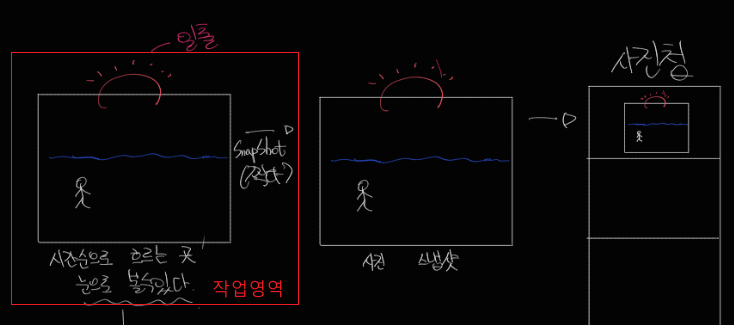 일출
snapshot
(찍다)
시간순으로 흐르는 곳
눈으로 볼수있다.
작업영역
사진 스냅샷
사진첩